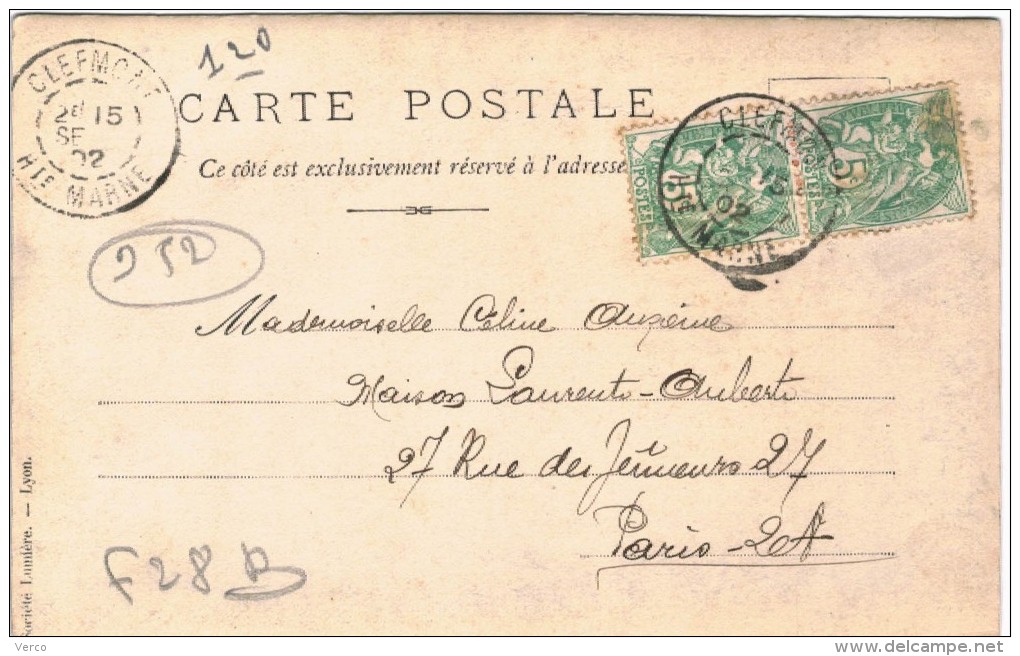 120
CLEFMONT
2e 15
SE
02
Hte MARNE
CARTE POSTALE
Ce côté est exclusivement réservé à l'adresse
CLEFMONT
15
02
Hte MARNE
5
POSTES
5
POSTES
952
Mademoiselle Céline Auzème
Maison Laurent-Aubert
27 Rue des Jeûneurs 27
Paris - 2 A
F28
Société Lumière. — Lyon.
Verco
www.delcampe.net